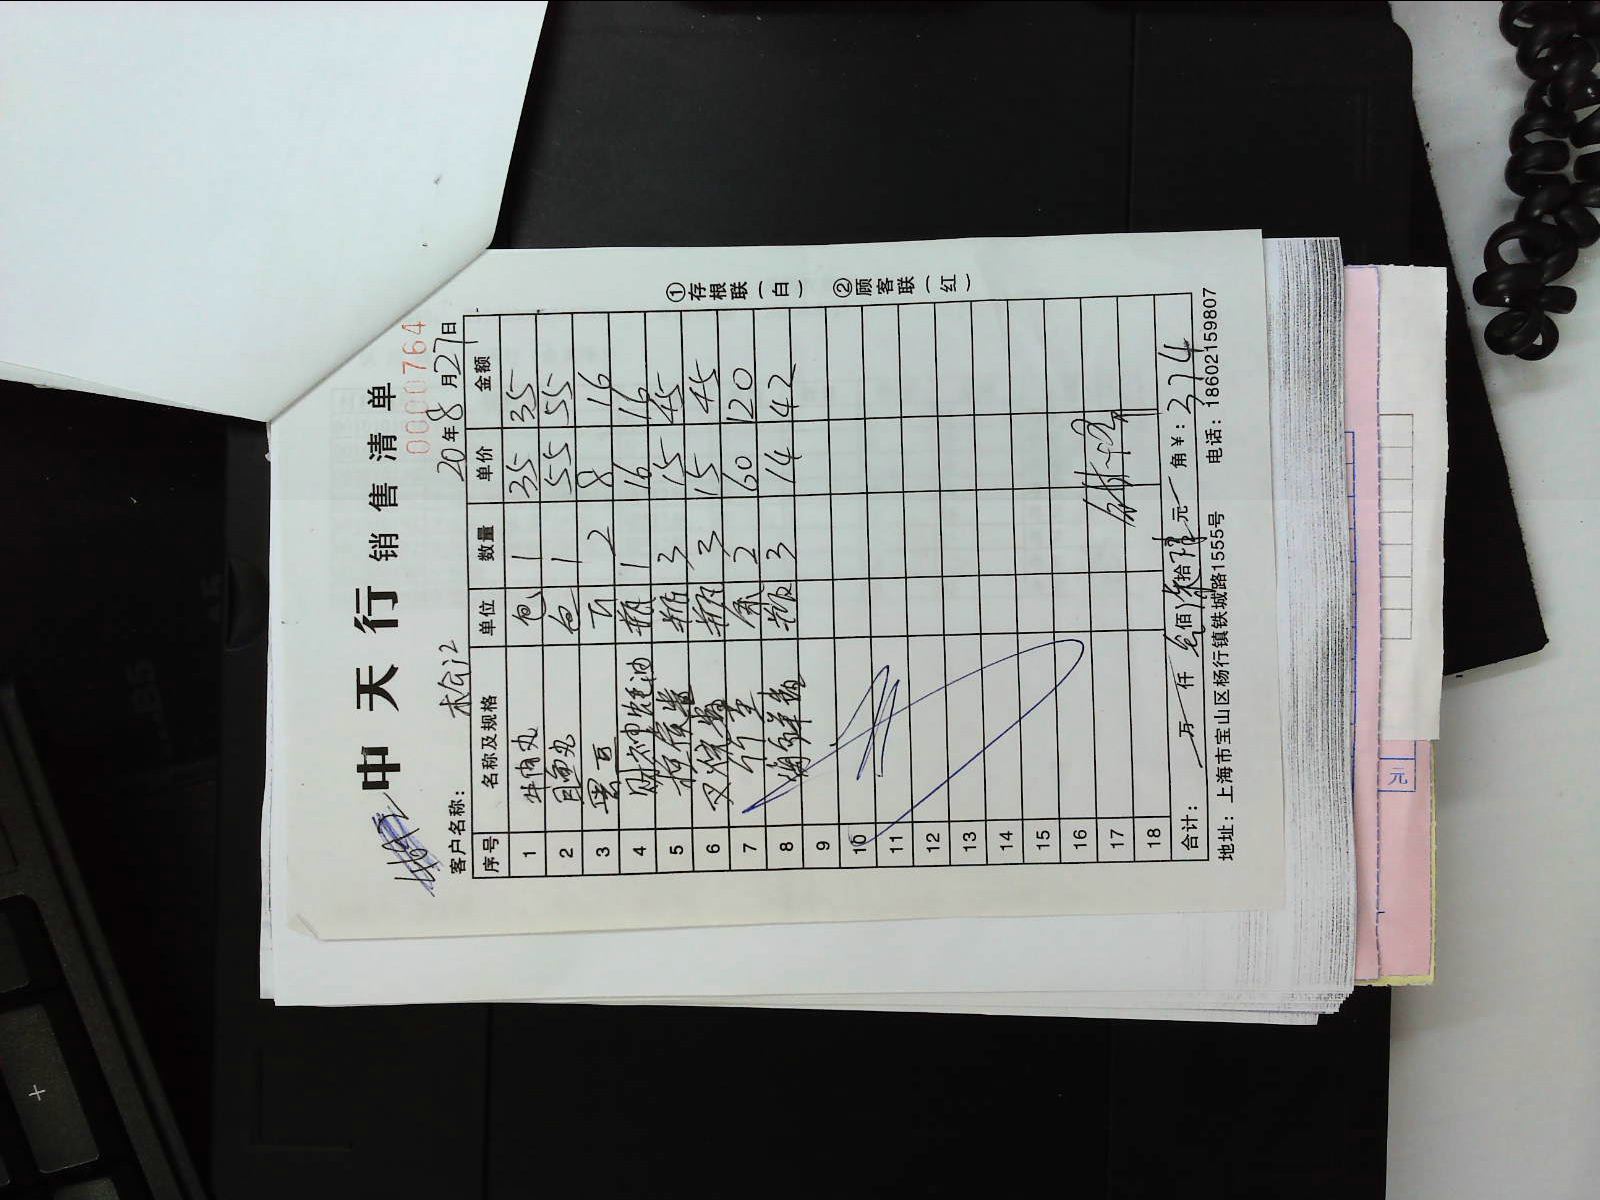 中天行 销售清单
00000764
客户名称： 松江 20 年 8 月 27 日
序号 名称及规格 单位 数量 单价 金额
1 牛肉丸 包 1 35 35
2 包 1 55 55
3 2 8 16
4 财神蚝油 瓶 1 16 16
5 瓶 3 15 45
6 叉烧酱 瓶 3 15 45
7 2 60 120
8 海鲜酱 瓶 3 14 42
9
10
11
12
13
14
15
16
17
18
合计： 万 仟 佰 拾 元 角 ¥：374
地址：上海市宝山区杨行镇铁城路1555号 电话：18602159807
①存根联（白） ②顾客联（红）
元
+